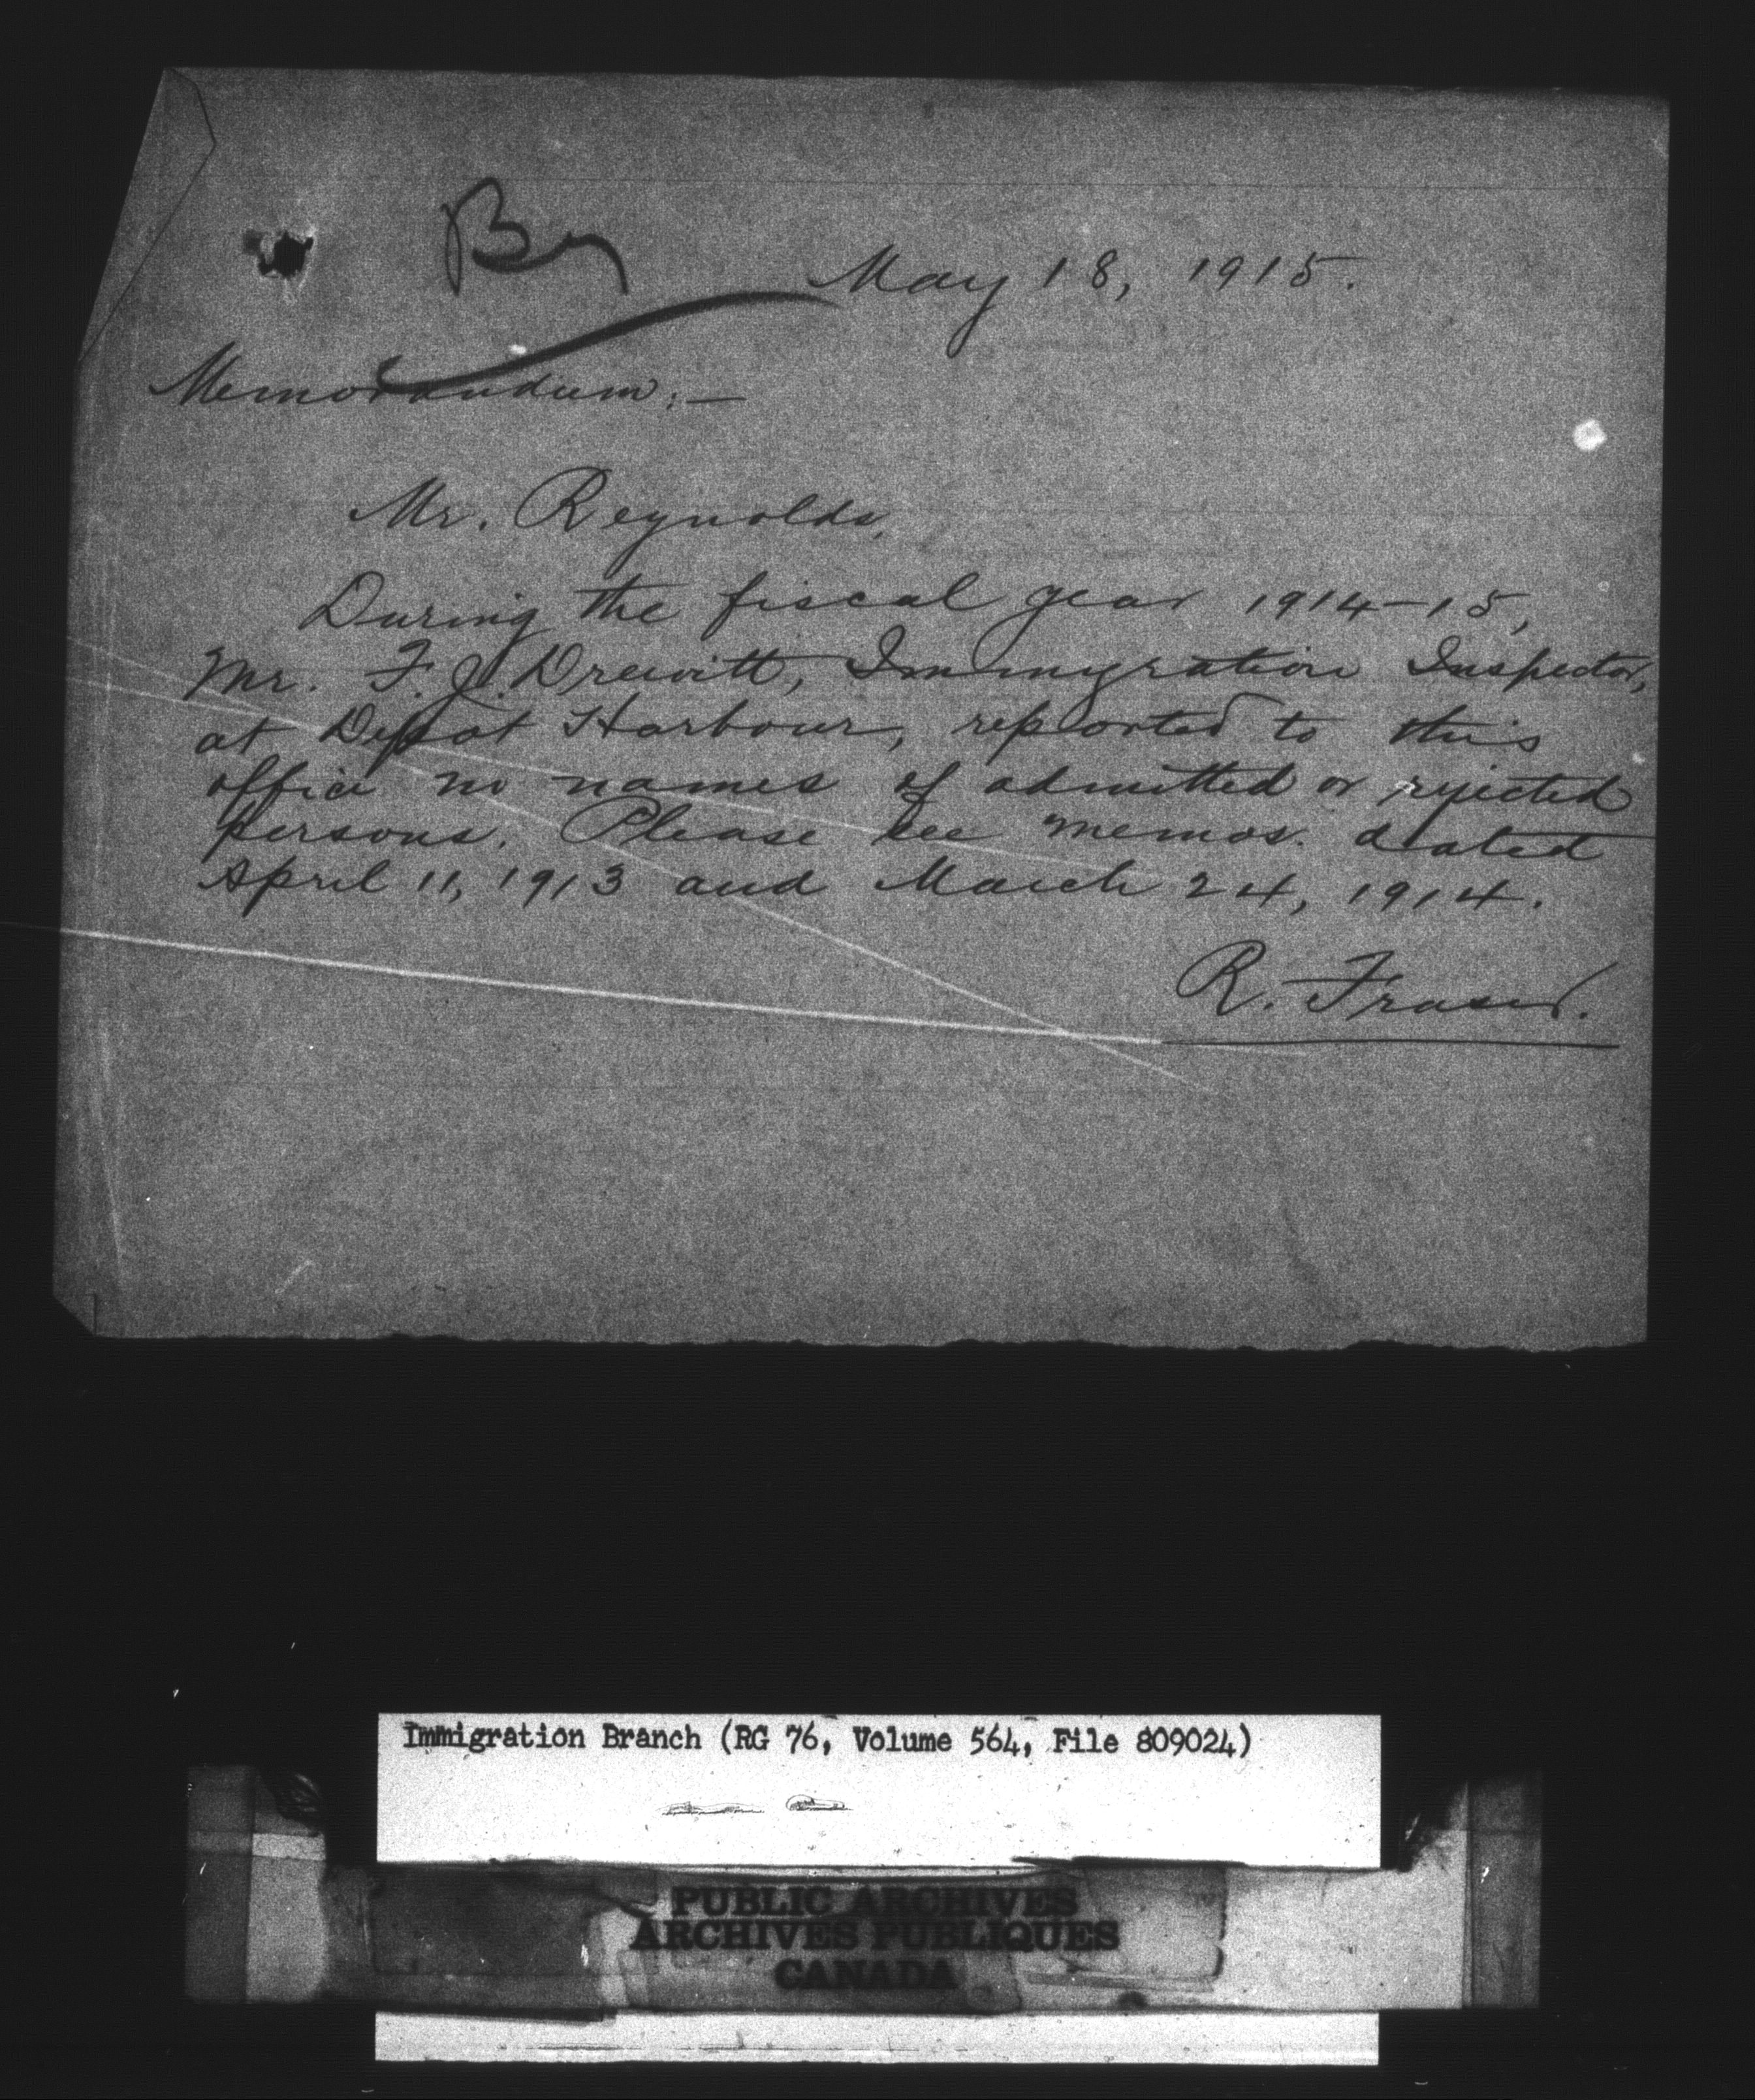 May 18, 1915.
Memorandum:—
Mr. Reynolds,
During the fiscal year 1914-15,
Mr. F. J. Drewitt, Immigration Inspector,
at Depot Harbour, reported to this
office no names of admitted or rejected
persons. Please see memos. dated
April 11, 1913 and March 24, 1914.
R. Fraser.
Immigration Branch (RG 76, Volume 564, File 809024)
PUBLIC ARCHIVES
ARCHIVES PUBLIQUES
CANADA